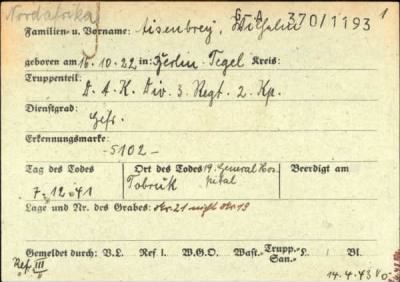 Nordafrika
G-A 370/1193 1
Familien- u. Vorname: Aisenbrey, Wilhelm
geboren am 15.10.22 in: Berlin-Tegel Kreis:
Truppenteil: D. A. K. Div. 3. Regt. 2. Kp.
Dienstgrad: Gefr.
Erkennungsmarke: -5102-
Tag des Todes Ort des Todes 19. General Hos- Beerdigt am
7.12.41 Tobruk pital
Lage und Nr. des Grabes: Nr. 21 nicht Nr. 19
Gemeldet durch: V.L. Ref. I. W.G.O. Wast.- Trupp.- San.- L. Bl.
Ref. III
14.4.43